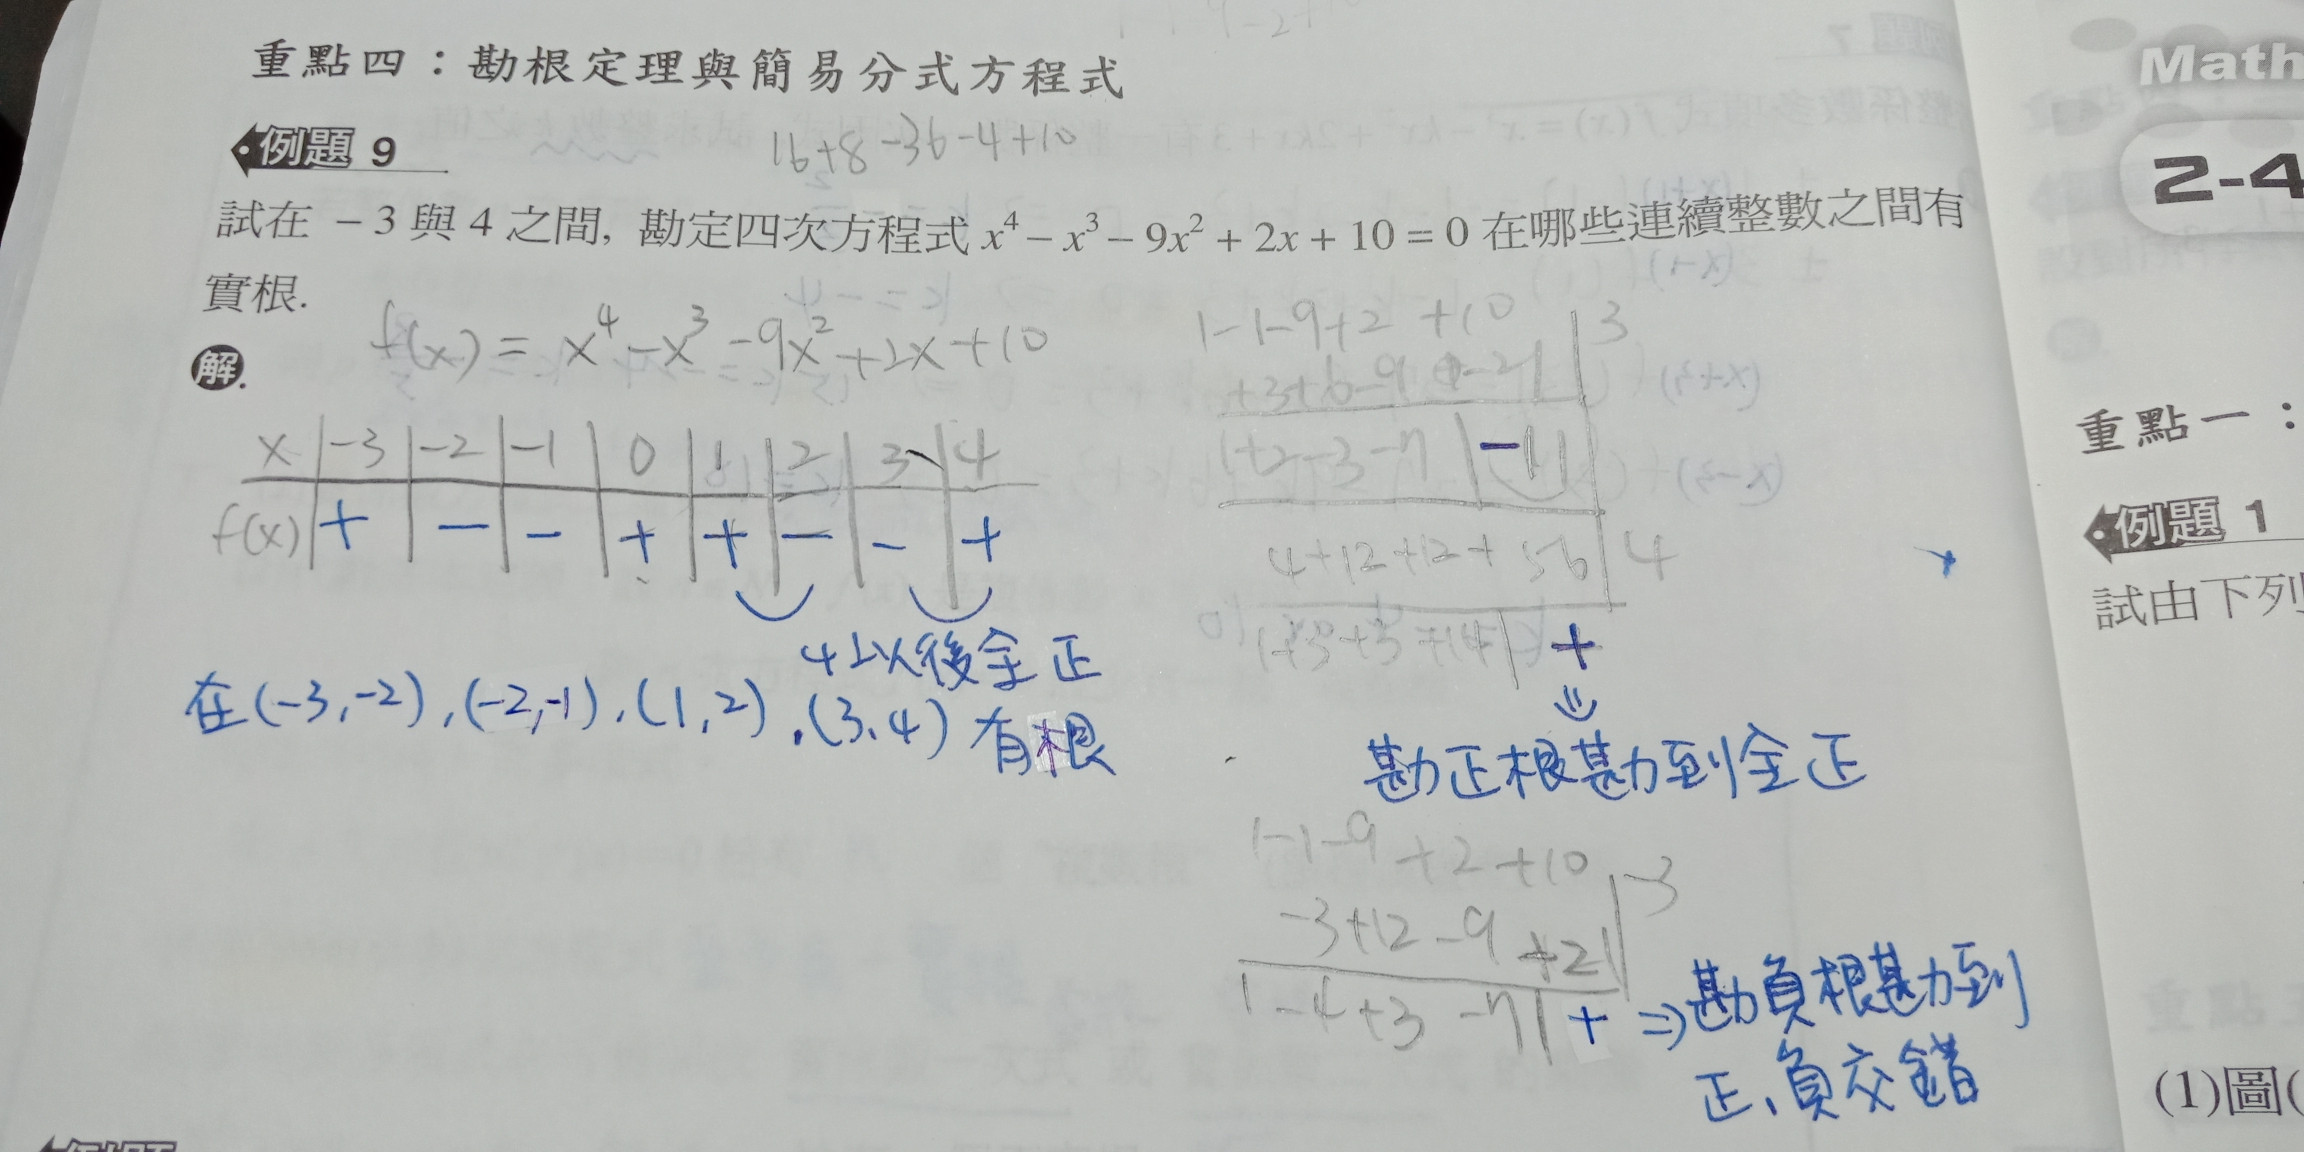 重點四：勘根定理與簡易分式方程式
例題 9
16+8-36-4+10
試在 －3 與 4 之間, 勘定四次方程式 x⁴－x³－9x²＋2x＋10＝0 在哪些連續整數之間有
實根.
解.
f(x) = x⁴-x³-9x²+2x+10
x | -3 | -2 | -1 | 0 | 1 | 2 | 3 | 4
f(x) | + | - | - | + | + | - | - | +
4以後全正
在(-3,-2),(-2,-1),(1,2),(3,4)有根
1-1-9+2+10 | 3
+3+6-9-21
1+2-3-7 | -11
4+12+12+56 | 4
1+3+3+14 | +
⇓
勘正根勘到全正
1-1-9+2+10
-3+12-9+21 | -3
1-4+3-7 | + ⇒勘負根勘到
正、負交錯
Math
2-4
重點一：
例題 1
試由下列
(1)圖(